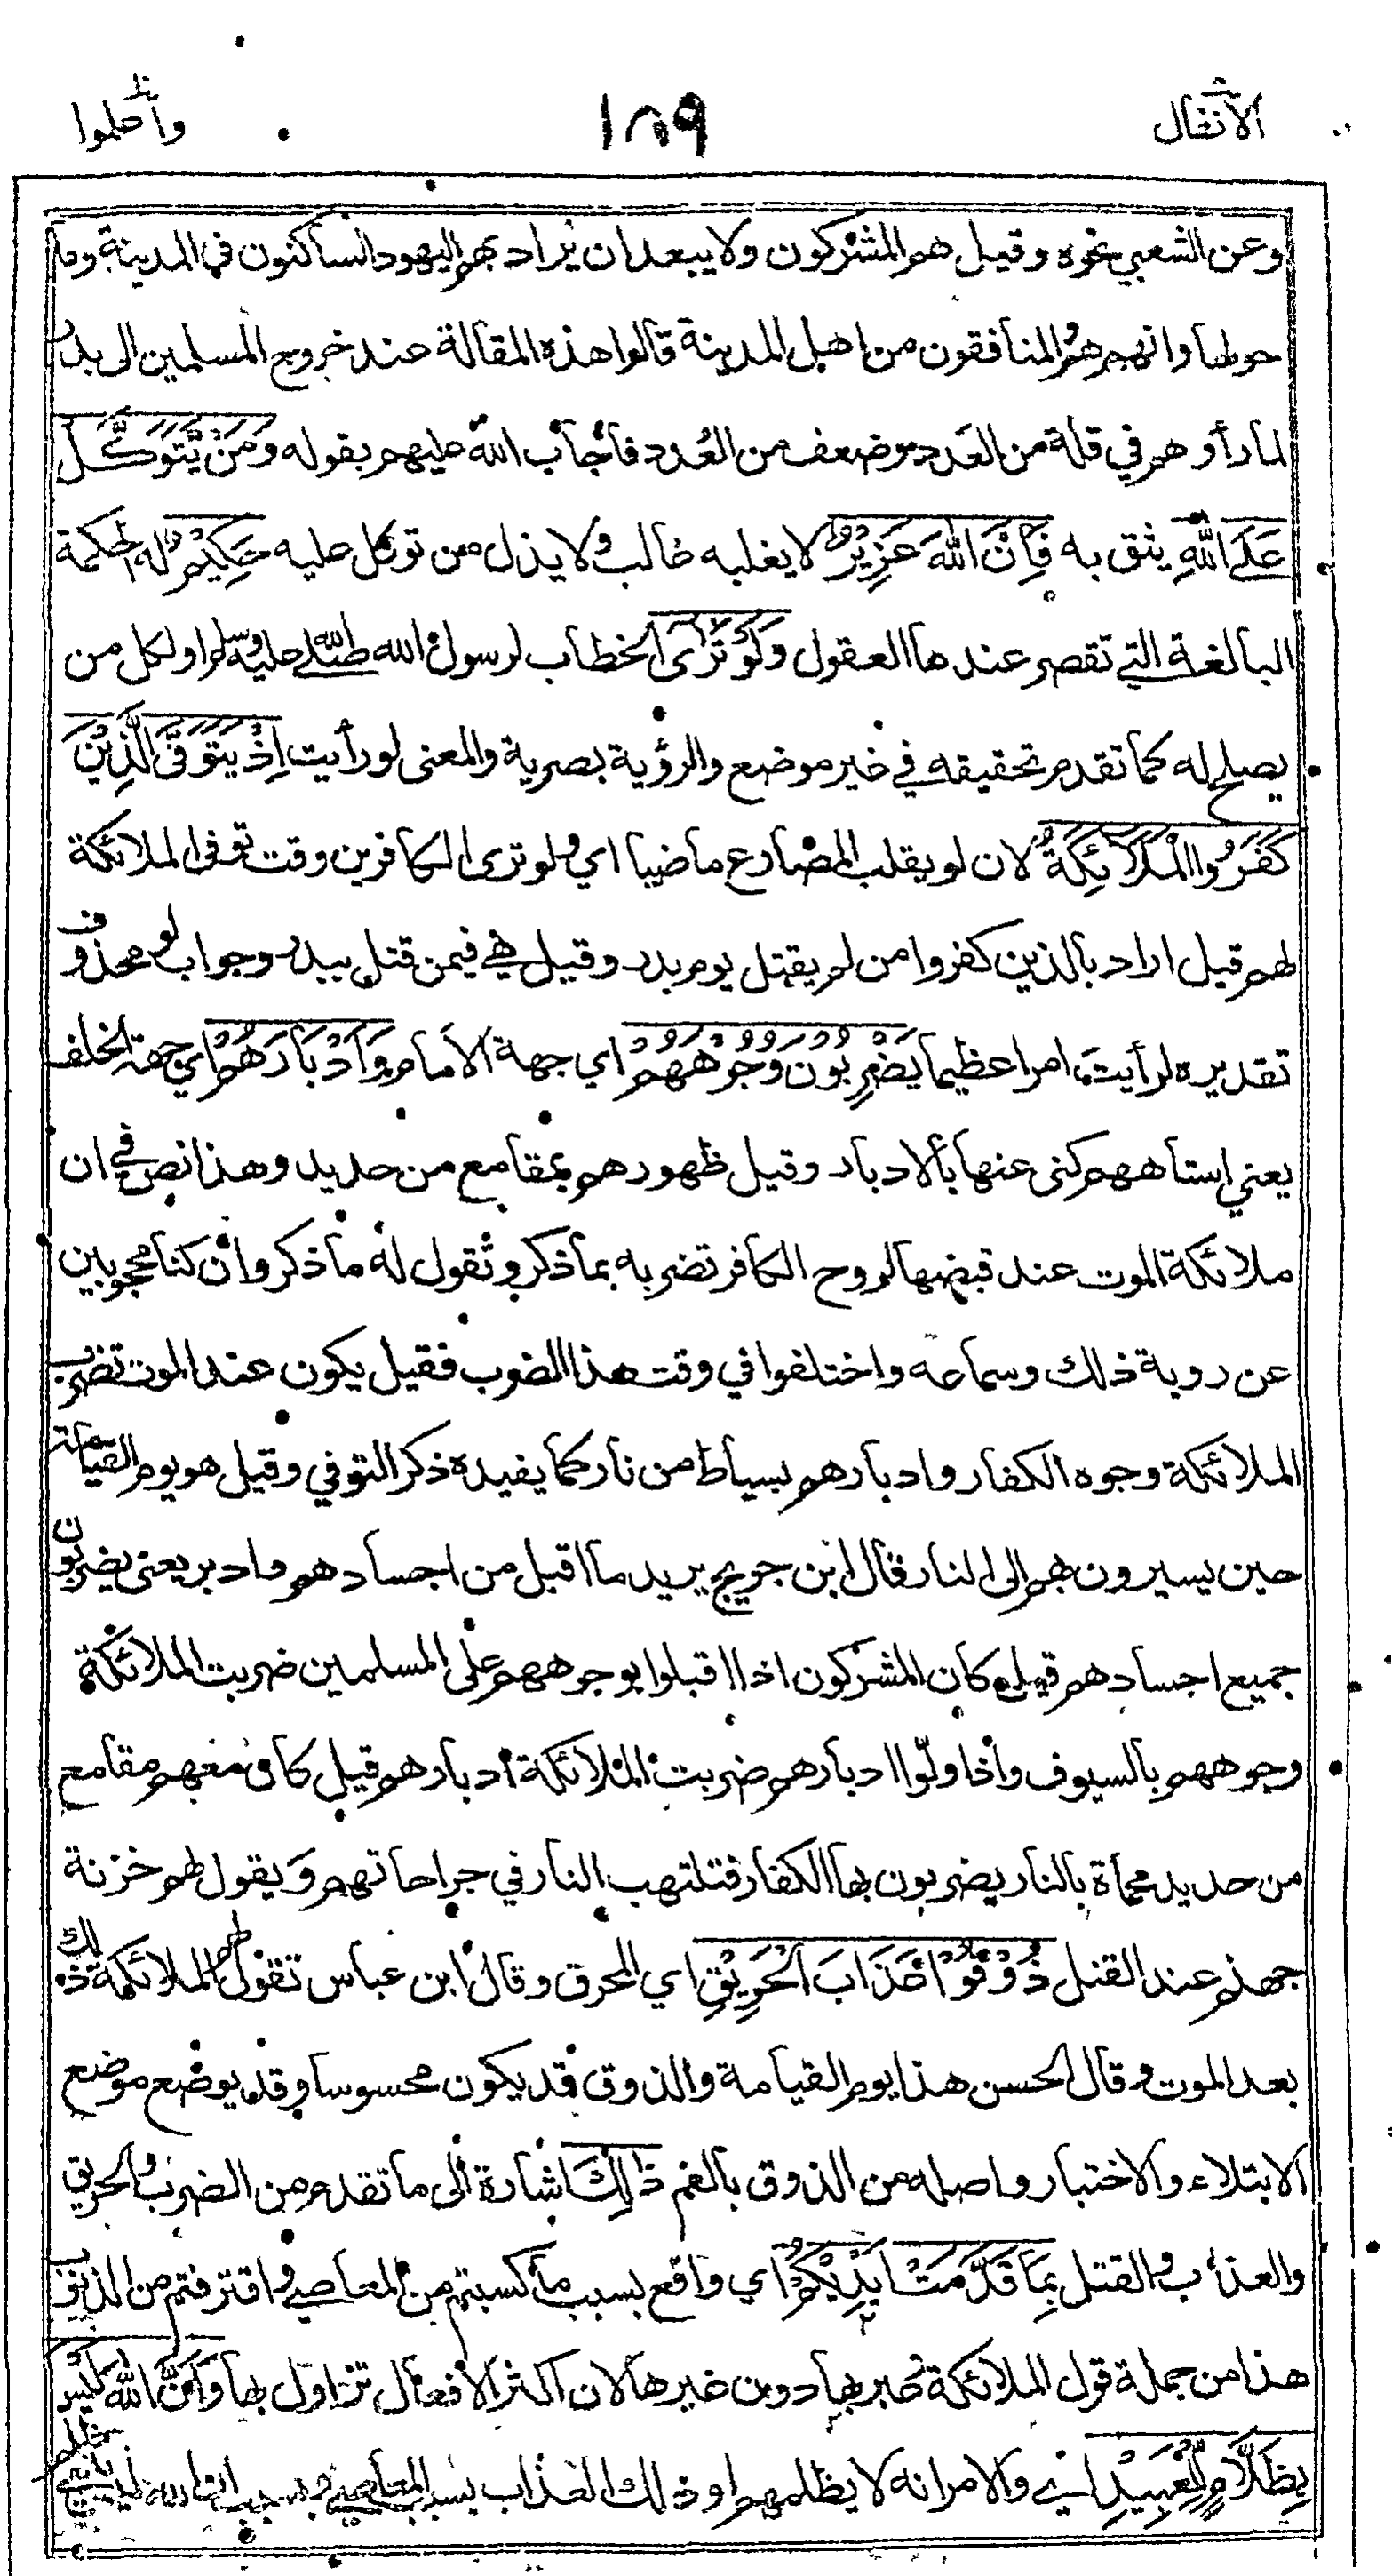 الأنفال ١٨٩ واعلموا
وعن الشعبي نحوه وقيل هم المشركون ولا يبعد ان يراد بهم اليهود الساكنون في المدينة وما
حولها وانهم هم والمنافقون من اهل المدينة قالوا هذه المقالة عند خروج المسلمين الى بدر
لما رأوهم في قلة من العَدد وضعف من العُدد فأجاب الله عليهم بقوله وَمَنْ يَّتَوَكَّلْ
عَلَى اللهِ يثق به فَاِنَّ اللهَ عَزِيْزٌ لا يغلبه غالب ولا يذل من توكل عليه حَكِيْمٌ له الحكمة
البالغة التي تقصر عندها العقول وَلَوْ تَرٰى الخطاب لرسول الله صلى الله عليه وسلم او لكل من
يصلح له كما تقدم تحقيقه في غير موضع والرؤية بصرية والمعنى لو رأيت اِذْ يَتَوَفَّى الَّذِيْنَ
كَفَرُوا الْمَلَائِكَةُ لان لو يقلب المضارع ماضيا اي ولو ترى الكافرين وقت توفى الملائكة
لهم قيل اراد بالذين كفروا من لم يقتل يوم بدر وقيل هي فيمن قتل ببدر وجواب لو محذوف
تقديره لرأيت امرا عظيما يَضْرِبُوْنَ وُجُوْهَهُمْ اي جهة الامام وَاَدْبَارَهُمْ اي جهة الخلف
يعني استاههم كنى عنها بالادبار وقيل ظهورهم بمقامع من حديد وهذا نص في ان
ملائكة الموت عند قبضها لروح الكافر تضربه بما ذكر وتقول له ما ذكر وان كنا محجوبين
عن روية ذلك وسماعه واختلفوا في وقت هذا الضرب فقيل يكون عند الموت تضرب
الملائكة وجوه الكفار وادبارهم بسياط من نار كما يفيده ذكر التوفي وقيل هو يوم القيامة
حين يسيرون بهم الى النار قال ابن جريج يريد ما اقبل من اجسادهم وادبر يعني يضربون
جميع اجسادهم قيل كان المشركون اذا اقبلوا بوجوههم على المسلمين ضربت الملائكة
وجوههم بالسيوف واذا ولّوا ادبارهم ضربت الملائكة ادبارهم قيل كان معهم مقامع
من حديد محماة بالنار يضربون بها الكفار فتلتهب النار في جراحاتهم وَ يقول لهم خزنة
جهنم عند القتل ذُوْقُوْا عَذَابَ الْحَرِيْقِ اي المحرق وقال ابن عباس تقول لهم الملائكة ذلك
بعد الموت وقال الحسن هذا يوم القيامة والذوق قد يكون محسوسا وقد يوضع موضع
الابتلاء والاختبار واصله من الذوق بالفم ذٰلِكَ اشارة الى ما تقدم من الضرب والحريق
والعذاب والقتل بِمَا قَدَّمَتْ اَيْدِيْكُمْ اي واقع بسبب ما كسبتم من المعاصي واقترفتم من الذنوب
هذا من جملة قول الملائكة عبر بها دون غيرها لان اكثر الافعال تزاول بها وَاَنَّ اللهَ لَيْسَ
بِظَلَّامٍ لِّلْعَبِيْدِ اي والامر انه لا يظلمهم او ذلك العذاب بسبب المعاصي وبسبب ان الله ليس